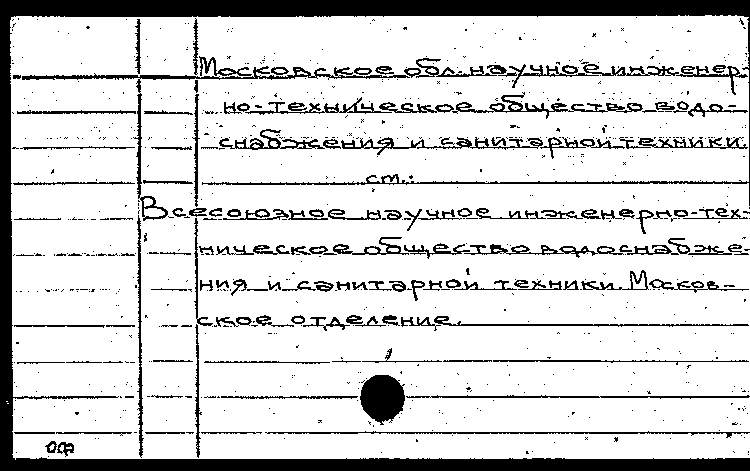 Московское обл. научное инженер-
но-техническое общество водо-
снабжения и санитарной техники.
ст.:
Всесоюзное научное инженерно-тех-
ническое общество водоснабже-
ния и санитарной техники. Москов-
ское отделение.